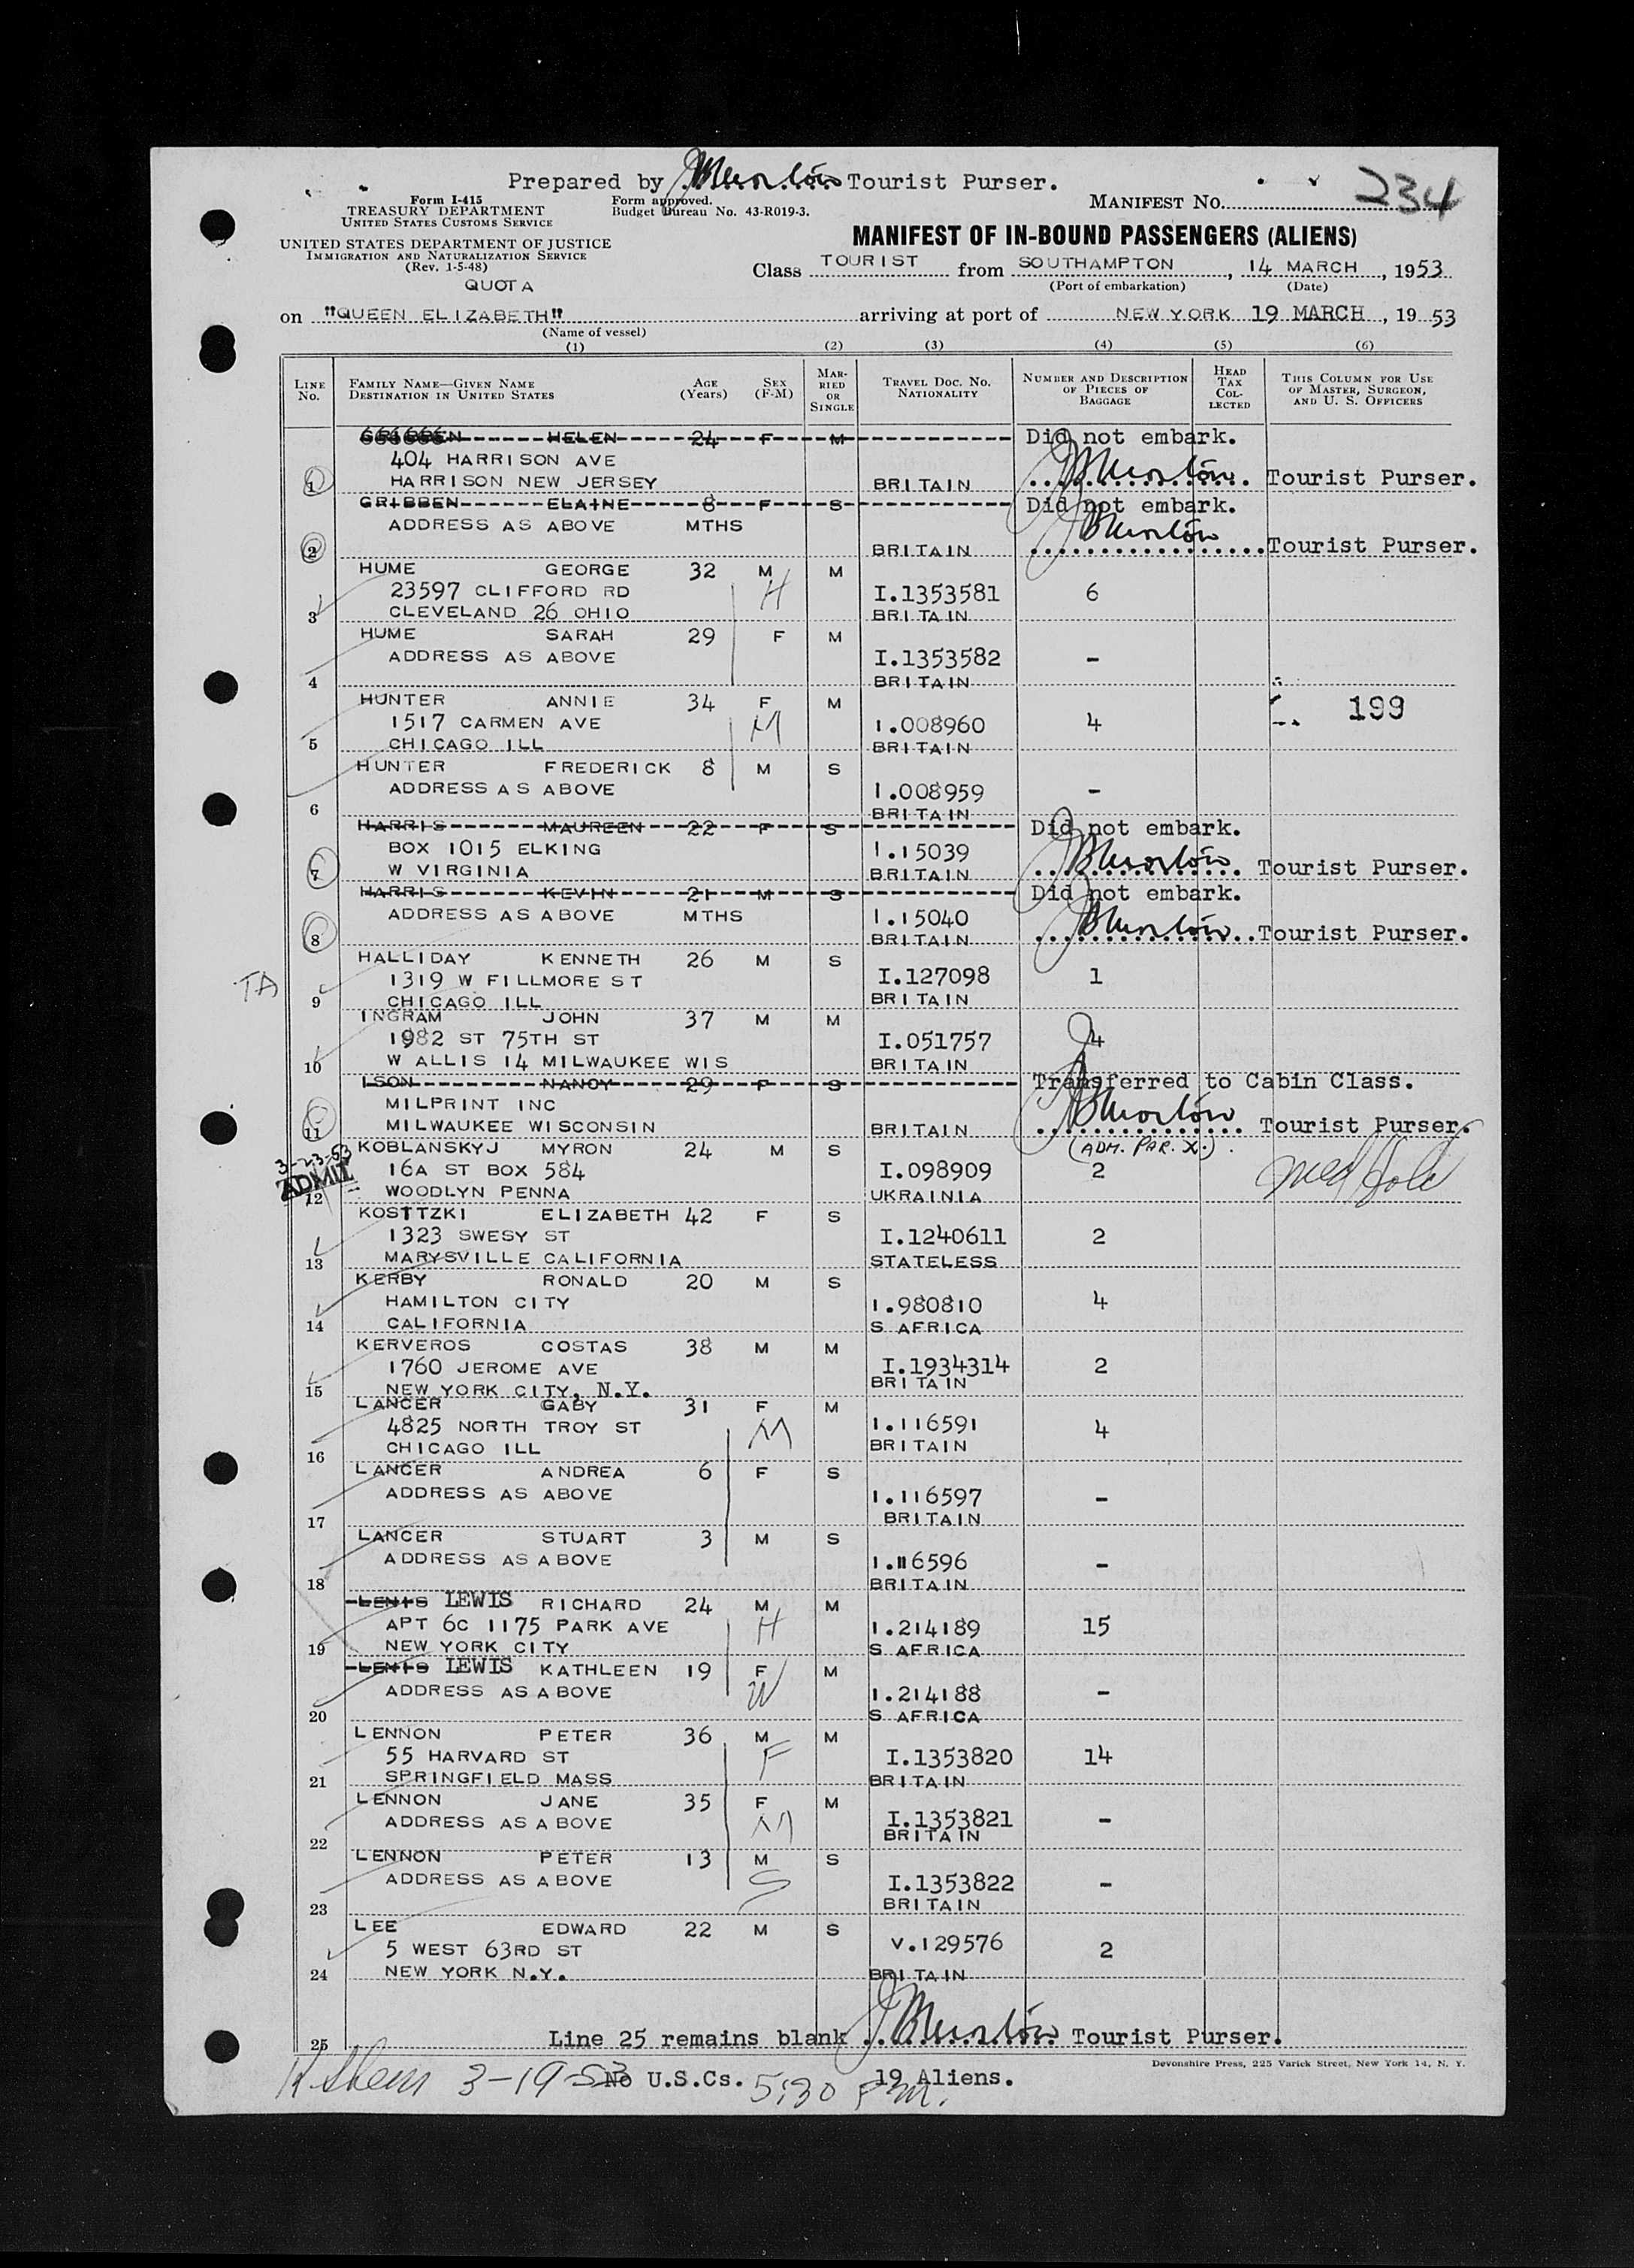 Prepared by J Morton Tourist Purser.
Form I-415
TREASURY DEPARTMENT
UNITED STATES CUSTOMS SERVICE
Form approved.
Budget Bureau No. 43-R019-3.
MANIFEST NO. 234
UNITED STATES DEPARTMENT OF JUSTICE
IMMIGRATION AND NATURALIZATION SERVICE
(Rev. 1-5-48)
QUOTA
MANIFEST OF IN-BOUND PASSENGERS (ALIENS)
Class TOURIST from SOUTHAMPTON, 14 MARCH, 1953
(Port of embarkation) (Date)
on "QUEEN ELIZABETH" arriving at port of NEW YORK 19 MARCH, 1953
(Name of vessel)
(1) (2) (3) (4) (5) (6)
LINE NO. FAMILY NAME—GIVEN NAME DESTINATION IN UNITED STATES AGE (YEARS) SEX (F-M) MARRIED OR SINGLE TRAVEL DOC. NO. NATIONALITY NUMBER AND DESCRIPTION OF PIECES OF BAGGAGE HEAD TAX COLLECTED THIS COLUMN FOR USE OF MASTER, SURGEON, AND U. S. OFFICERS
GRIBBEN HELEN 24 F M Did not embark.
404 HARRISON AVE
1 HARRISON NEW JERSEY BRITAIN J Morton Tourist Purser.
GRIBBEN ELAINE 8 F S Did not embark.
ADDRESS AS ABOVE MTHS
2 BRITAIN J Morton Tourist Purser.
HUME GEORGE 32 M M
23597 CLIFFORD RD H I.1353581 6
3 CLEVELAND 26 OHIO BRITAIN
HUME SARAH 29 F M
ADDRESS AS ABOVE I.1353582 -
4 BRITAIN
HUNTER ANNIE 34 F M 199
1517 CARMEN AVE M I.008960 4
5 CHICAGO ILL BRITAIN
HUNTER FREDERICK 8 M S
ADDRESS AS ABOVE I.008959 -
6 BRITAIN
HARRIS MAUREEN 22 F S Did not embark.
BOX 1015 ELKING I.15039
7 W VIRGINIA BRITAIN J Morton Tourist Purser.
HARRIS KEVIN 21 M S Did not embark.
ADDRESS AS ABOVE MTHS I.15040
8 BRITAIN J Morton Tourist Purser.
HALLIDAY KENNETH 26 M S
TA 1319 W FILLMORE ST I.127098 1
9 CHICAGO ILL BRITAIN
INGRAM JOHN 37 M M
1982 ST 75TH ST I.051757 4
10 W ALLIS 14 MILWAUKEE WIS BRITAIN
ISON NANCY 29 F S Transferred to Cabin Class.
MILPRINT INC
11 MILWAUKEE WISCONSIN BRITAIN J Morton Tourist Purser.
KOBLANSKYJ MYRON 24 M S (ADM. PAR. X.)
3-23-53 16A ST BOX 584 I.098909 2 Med Hold
ADMIT
12 WOODLYN PENNA UKRAINIA
KOSTTZKI ELIZABETH 42 F S
1323 SWESY ST I.1240611 2
13 MARYSVILLE CALIFORNIA STATELESS
KERBY RONALD 20 M S
HAMILTON CITY I.980810 4
14 CALIFORNIA S AFRICA
KERVEROS COSTAS 38 M M
1760 JEROME AVE I.1934314 2
15 NEW YORK CITY, N.Y. BRITAIN
LANCER GABY 31 F M
4825 NORTH TROY ST M I.116591 4
16 CHICAGO ILL BRITAIN
LANCER ANDREA 6 F S
ADDRESS AS ABOVE I.116597 -
17 BRITAIN
LANCER STUART 3 M S
ADDRESS AS ABOVE I.116596 -
18 BRITAIN
LENIS LEWIS RICHARD 24 M M
APT 6C 1175 PARK AVE H I.214189 15
19 NEW YORK CITY S AFRICA
LENIS LEWIS KATHLEEN 19 F M
ADDRESS AS ABOVE W I.214188 -
20 S AFRICA
LENNON PETER 36 M M
55 HARVARD ST F I.1353820 14
21 SPRINGFIELD MASS BRITAIN
LENNON JANE 35 F M
ADDRESS AS ABOVE M I.1353821 -
22 BRITAIN
LENNON PETER 13 M S
ADDRESS AS ABOVE S I.1353822 -
23 BRITAIN
LEE EDWARD 22 M S
5 WEST 63RD ST V.129576 2
24 NEW YORK N.Y. BRITAIN
25 Line 25 remains blank J Morton Tourist Purser.
Devonshire Press, 225 Varick Street, New York 14, N. Y.
3-19-53 No U.S.Cs. 5:30 P.M. 19 Aliens.